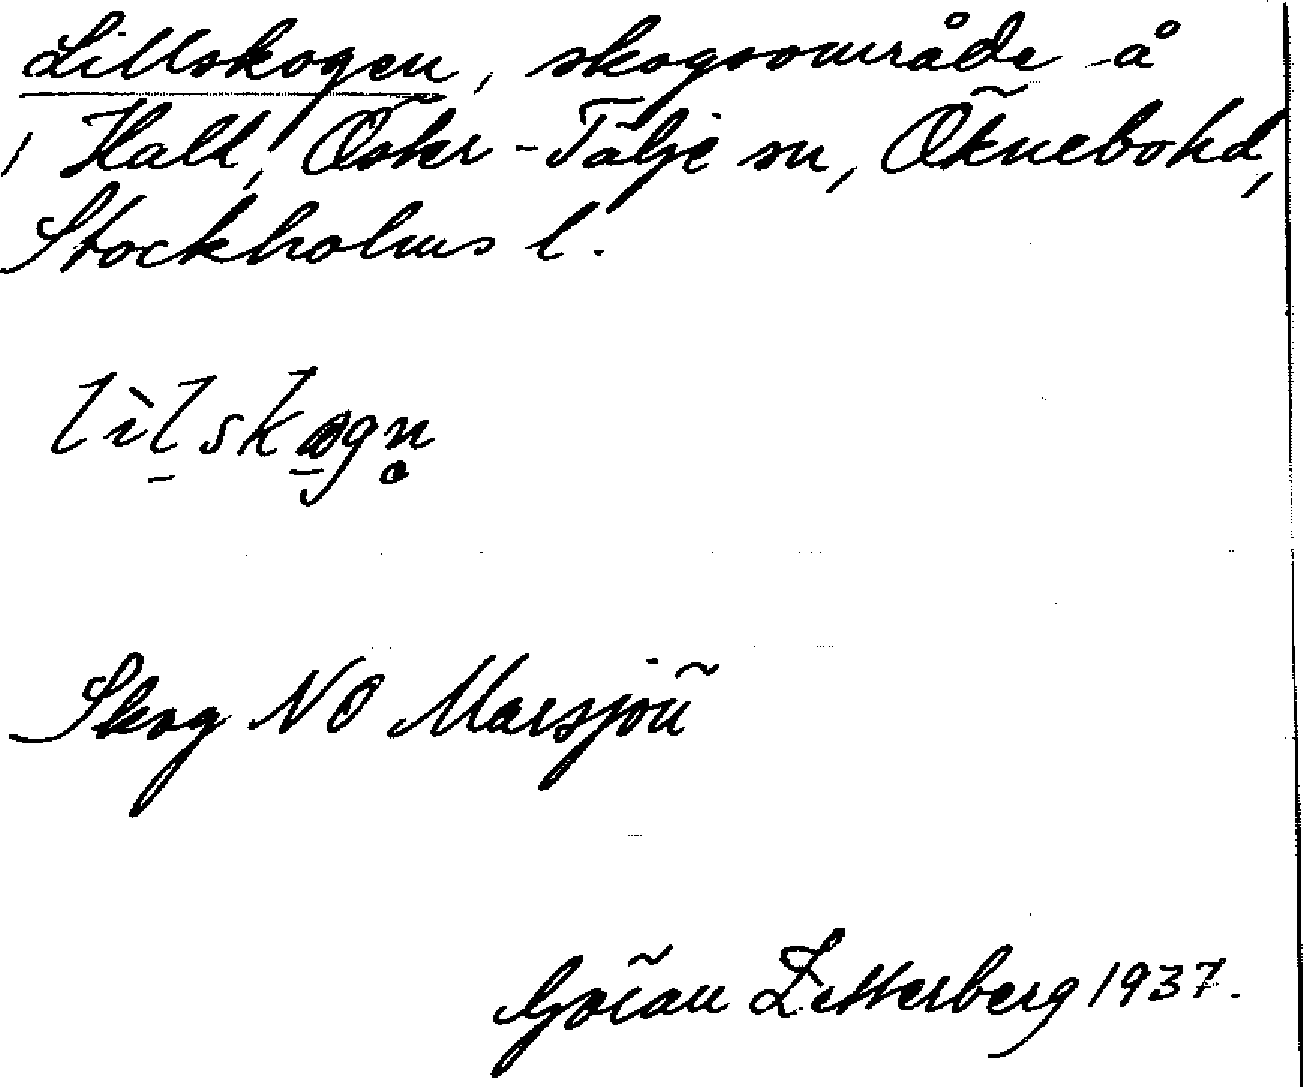 Lillskogen, skogsområde å
Hall, Öster-Tälje sn, Öknebo hd,
Stockholms l.
lìlskogn̥
Skog NO Marsjön
Göran Zetterberg 1937.